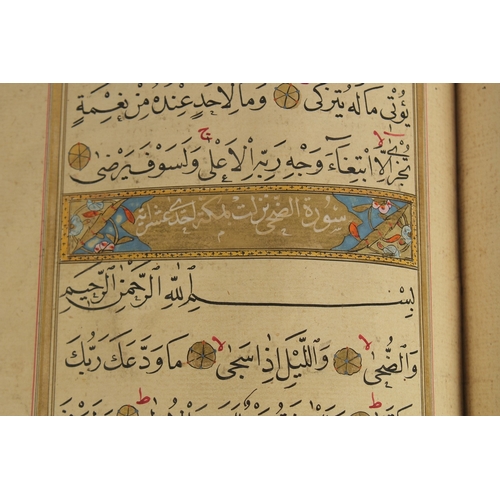 يُؤْتِي مَالَهُ يَتَزَكَّى وَمَا لِأَحَدٍ عِنْدَهُ مِنْ نِعْمَةٍ
تُجْزَى إِلَّا ابْتِغَاءَ وَجْهِ رَبِّهِ الْأَعْلَى وَلَسَوْفَ يَرْضَى
سورة الضحى نزلت بمكة احدى عشرة آية
بِسْمِ اللَّهِ الرَّحْمَنِ الرَّحِيمِ
وَالضُّحَى وَاللَّيْلِ إِذَا سَجَى مَا وَدَّعَكَ رَبُّكَ